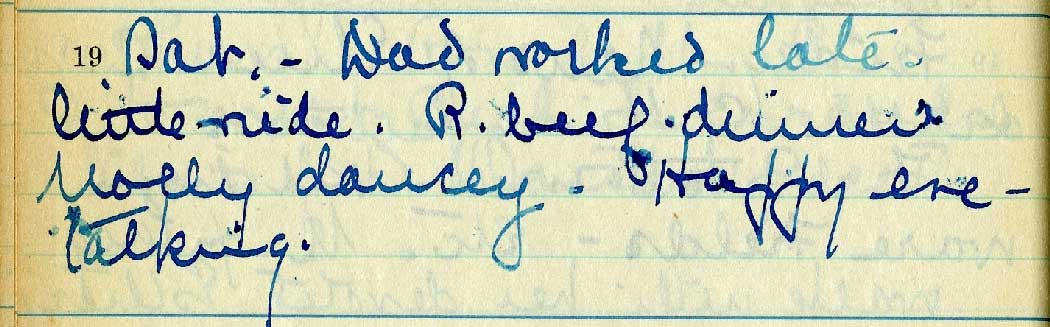 19 Sat. - Dad worked late.
little ride. R. beef dinner.
Molly dancey. Happy eve -
talking.